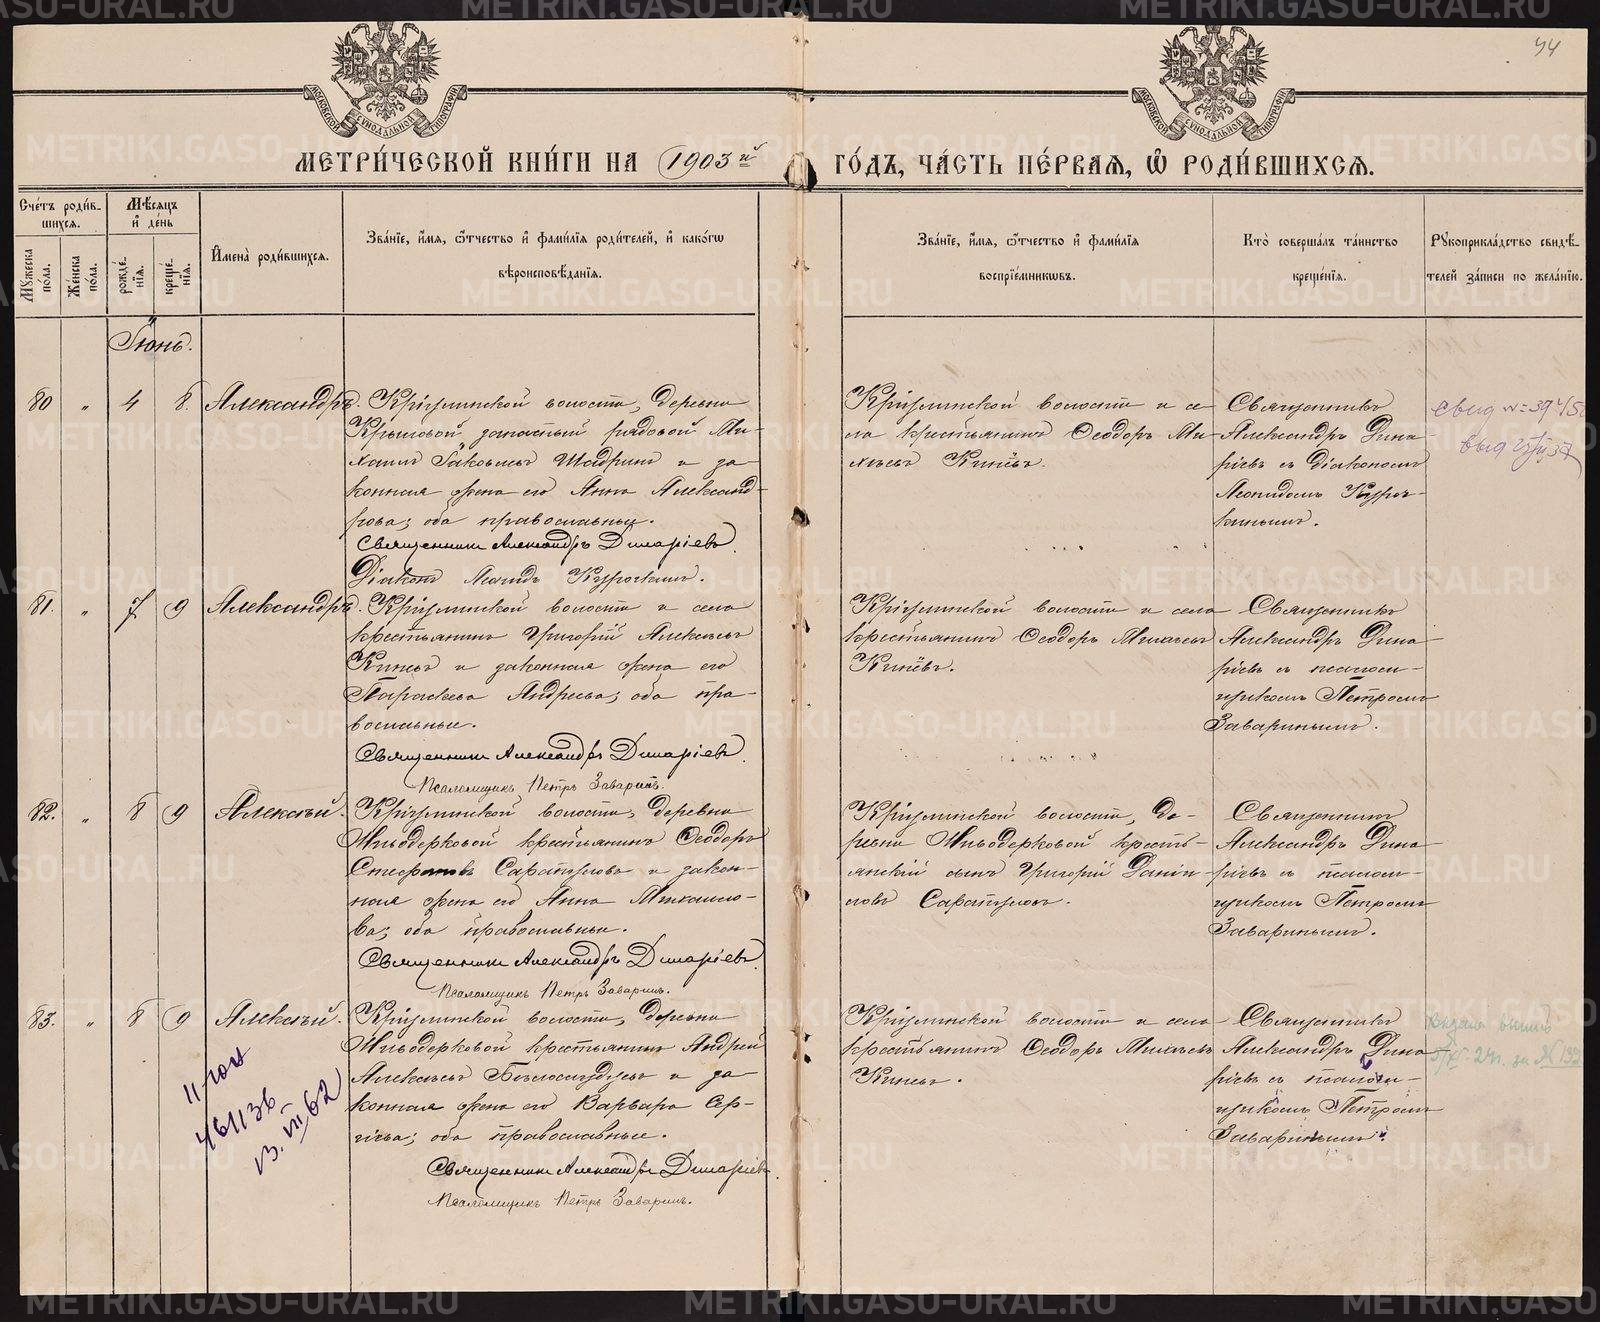 44
МОСКОВСКОЙ СѴНОДАЛЬНОЙ ТИПОГРАФІИ
МОСКОВСКОЙ СѴНОДАЛЬНОЙ ТИПОГРАФІИ
МЕТРИ́ЧЕСКОЙ КНИ́ГИ НА 1903й ГО́ДЪ, ЧА́СТЬ ПЕ́РВАѦ, Ѿ РОДИ́ВШИХСѦ.
Сче́тъ роди́вшихся.
Мѣ́сяцъ и де́нь
Му́жеска по́ла.
Же́нска по́ла.
рожде́нїя.
креще́нїя.
И҆мена̀ роди́вшихся.
Зва́нїе, и҆́мя, ѻ҆́тчество и҆ фами́лїя роди́телей, и҆ како́гѡ
вѣроисповѣ́данїя.
Зва́нїе, и҆́мя, ѻ҆́тчество и҆ фами́лїя
воспрїе́мникѡвъ.
Кто̀ соверша́лъ та́инство
креще́нїя.
Рꙋкоприкла́дство свидѣ́телей за́писи по жела́нїю.
Іюнь.
80 „ 4 8. Александръ.
Крiулинской волости, деревни
Крыловой, запасный рядовой Ми-
хаилъ Іаковлевъ Шадринъ и за-
конная жена его Анна Александ-
рова; оба православные.
Священникъ Александръ Динаріевъ.
Діаконъ Леонидъ Курочкинъ.
Крiулинской волости и се
ла крестьянинъ Ѳеодоръ Ми-
хѣевъ Кинёвъ.
Священникъ
Александръ Дина-
ріевъ съ Діакономъ
Леонидомъ Куроч-
кинымъ.
81. „ 7 9 Александръ.
Крiулинской волости и села
крестьянинъ Григорій Алексѣевъ
Кинёвъ и законная жена его
Параскева Андреева; оба пра-
вославные.
Священникъ Александръ Динаріевъ.
Псаломщикъ Петръ Заваринъ.
Крiулинской волости и села
крестьянинъ Ѳеодоръ Михѣевъ
Кинёвъ.
Священникъ
Александръ Дина-
ріевъ съ псалом-
щикомъ Петромъ
Заваринымъ.
82. „ 8 9 Алексѣй.
Крiулинской волости, деревни
Живодерковой крестьянинъ Ѳеодоръ
Стефановъ Сарапуловъ и закон-
ная жена его Анна Михаило-
ва; оба православные.
Священникъ Александръ Динаріевъ.
Псаломщикъ Петръ Заваринъ.
Крiулинской волости, де-
ревни Живодерковой кресть-
янскій сынъ Григорій Даніи-
ловъ Сарапуловъ.
Священникъ
Александръ Дина
ріевъ съ псалом-
щикомъ Петромъ
Заваринымъ.
83. „ 8 9 Алексѣй.
Крiулинской волости, деревни
Живодерковой крестьянинъ Андрей
Алексѣевъ Бѣлослудцевъ и за
конная жена его Варвара Сер-
гіева; оба православные.
Священникъ Александръ Динаріевъ.
Псаломщикъ Петръ Заваринъ.
Крiулинской волости и села
крестьянинъ Ѳеодоръ Михѣевъ
Кинёвъ.
Священникъ
Александръ Дина
ріевъ съ псалом-
щикомъ Петромъ
Заваринымъ.
461136
13. VII 62